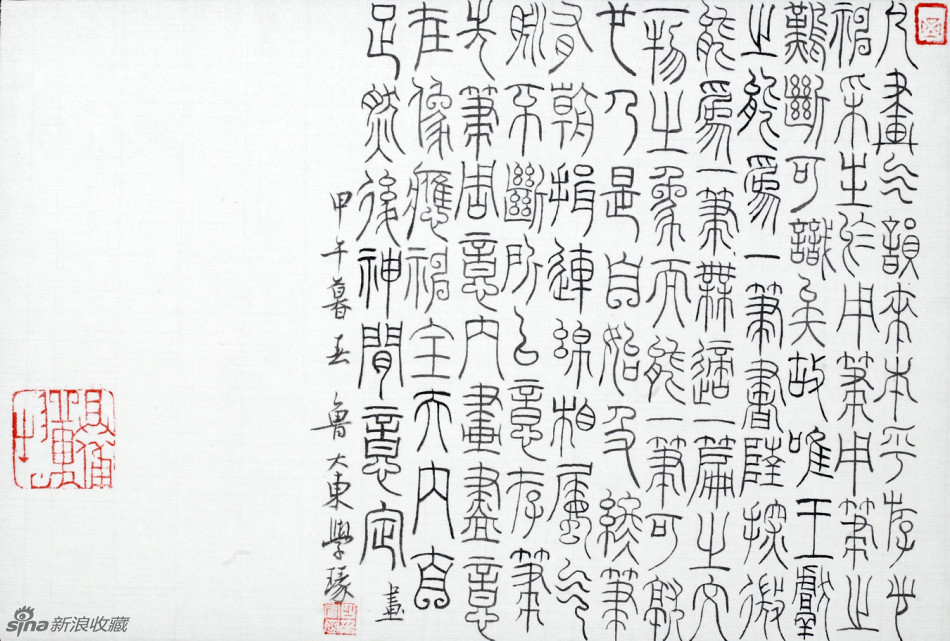 凡畫气韻本乎游心
神采生於用筆用筆之
難斷可識矣故唯王獻
之能爲一筆書陸探微
能爲一筆無適一篇之文
一物之象而能一筆可就
也乃是自始及終筆
有朝揖連綿相屬气
脈不斷所以意存筆
先筆周意内畫盡意
在像應神全夫内自
足然後神閒意定
畫
甲午暮春 魯大東學瑑
sina新浪收藏